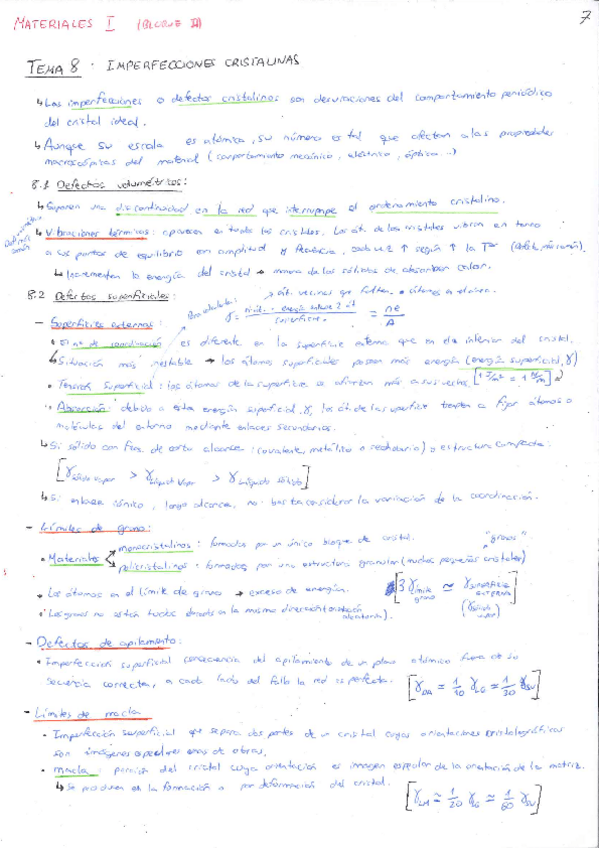 7
MATERIALES I (BLOQUE II)
TEMA 8. IMPERFECCIONES CRISTALINAS
↳ Las imperfecciones o defectos cristalinos son desviaciones del comportamiento periódico
del cristal ideal.
↳ Aunque su escala es atómica, su número es tal que afectan a las propiedades
macroscópicas del material (comportamiento mecánico, eléctrico, óptico...)
8.1 Defectos volumétricos:
↳ Suponen una discontinuidad en la red que interrumpe el ordenamiento cristalino.
↳ Vibraciones térmicas: aparecen en todos los cristales. Los át. de los cristales vibran en torno
a sus puntos de equilibrio en amplitud y frecuencia, cada vez ↑ según ↑ la Tª
↳ Incrementan la energía del cristal → manera de los sólidos de absorber calor.
8.2 Defectos superficiales:
→ át. vecinos que faltan
γ = nº át. · energía enlace 2 át / superficie = nE / A
- Superficies externas:
• El nº de coordinación es diferente en la superficie externa que en el interior del cristal.
↳ Situación más inestable → los átomos superficiales poseen más energía (energía superficial, γ)
• Tensión superficial: los átomos de la superficie se afianzan más a sus vecinos [1 J/m² = 1 N/m]
• Absorción: debido a esta energía superficial, γ, los át. de la superficie tienden a fijar átomos o
moléculas del entorno mediante enlaces secundarios.
↳ Si sólido con fzas. de corto alcance: (covalente, metálico o secundario) o estructura compacta:
[γ sólido vapor > γ líquido vapor > γ líquido sólido]
↳ Si enlace iónico, largo alcance, no basta considerar la variación de la coordinación.
- Límites de grano:
• Materiales monocristalinos: formados por un único bloque de cristal. "granos"
policristalinos: formados por una estructura granular (muchos pequeños cristales)
• Los átomos en el límite de grano → exceso de energía. [3 γ límite grano ≃ γ superficie externa]
(γ sólido vapor)
• Los granos no están todos en la misma dirección (orientación aleatoria).
- Defectos de apilamiento:
• Imperfección superficial consecuencia del apilamiento de un plano atómico fuera de su
secuencia correcta, a cada lado del fallo la red es perfecta. [γDA ≃ 1/10 γLG ≃ 1/30 γSV]
- Límites de macla
• Imperfección superficial que separa dos partes de un cristal cuyas orientaciones cristalográficas
son imágenes especulares unas de otras.
• Macla: porción del cristal cuya orientación es imagen especular de la orientación de la matriz.
↳ Se producen en la formación o por deformación del cristal.
[γLM ≃ 1/20 γLG ≃ 1/60 γSV]